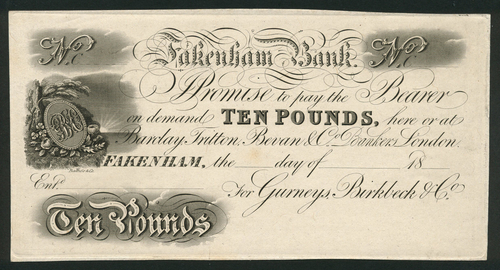 No. Fakenham Bank. No.
I Promise to pay the Bearer
on demand TEN POUNDS, here or at
Barclay, Tritton, Bevan & Co. Bankers, London.
FAKENHAM, the day of 18
Entd. For Gurneys, Birkbeck & Co.
Ten Pounds